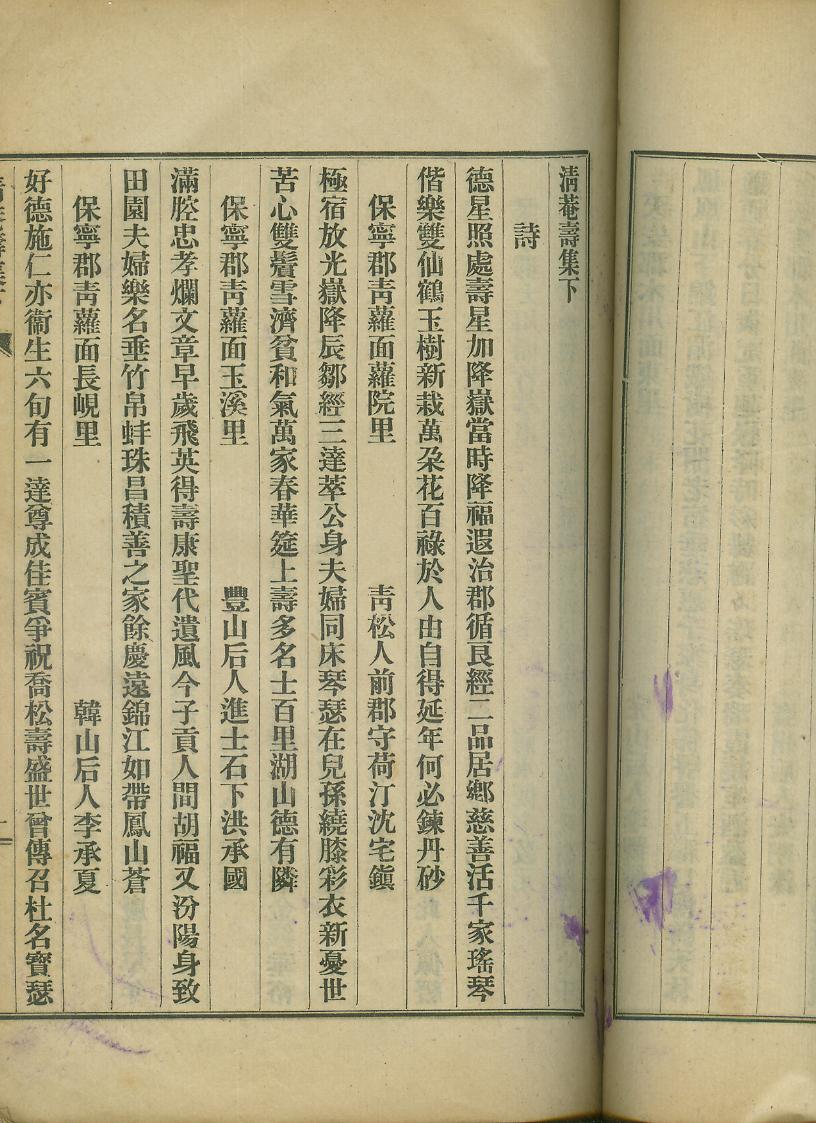 淸菴壽集下
詩
德星照處壽星加降嶽當時降福遐治郡循良經二品居鄕慈善活千家瑤琴
偕樂雙仙鶴玉樹新栽萬朶花百祿於人由自得延年何必鍊丹砂
保寧郡靑蘿面蘿院里 靑松人前郡守荷汀沈宅鎭
極宿放光嶽降辰鄒經三達萃公身夫婦同床琴瑟在兒孫繞膝彩衣新憂世
苦心雙鬢雪濟貧和氣萬家春華筵上壽多名士百里湖山德有隣
保寧郡靑蘿面玉溪里 豐山后人進士石下洪承國
滿腔忠孝爛文章早歲飛英得壽康聖代遺風今子貢人間胡福又汾陽身致
田園夫婦樂名垂竹帛蚌珠昌積善之家餘慶遠錦江如帶鳳山蒼
保寧郡靑蘿面長峴里 韓山后人李承夏
好德施仁亦衞生六旬有一達尊成佳賓爭祝喬松壽盛世曾傳召杜名寶瑟